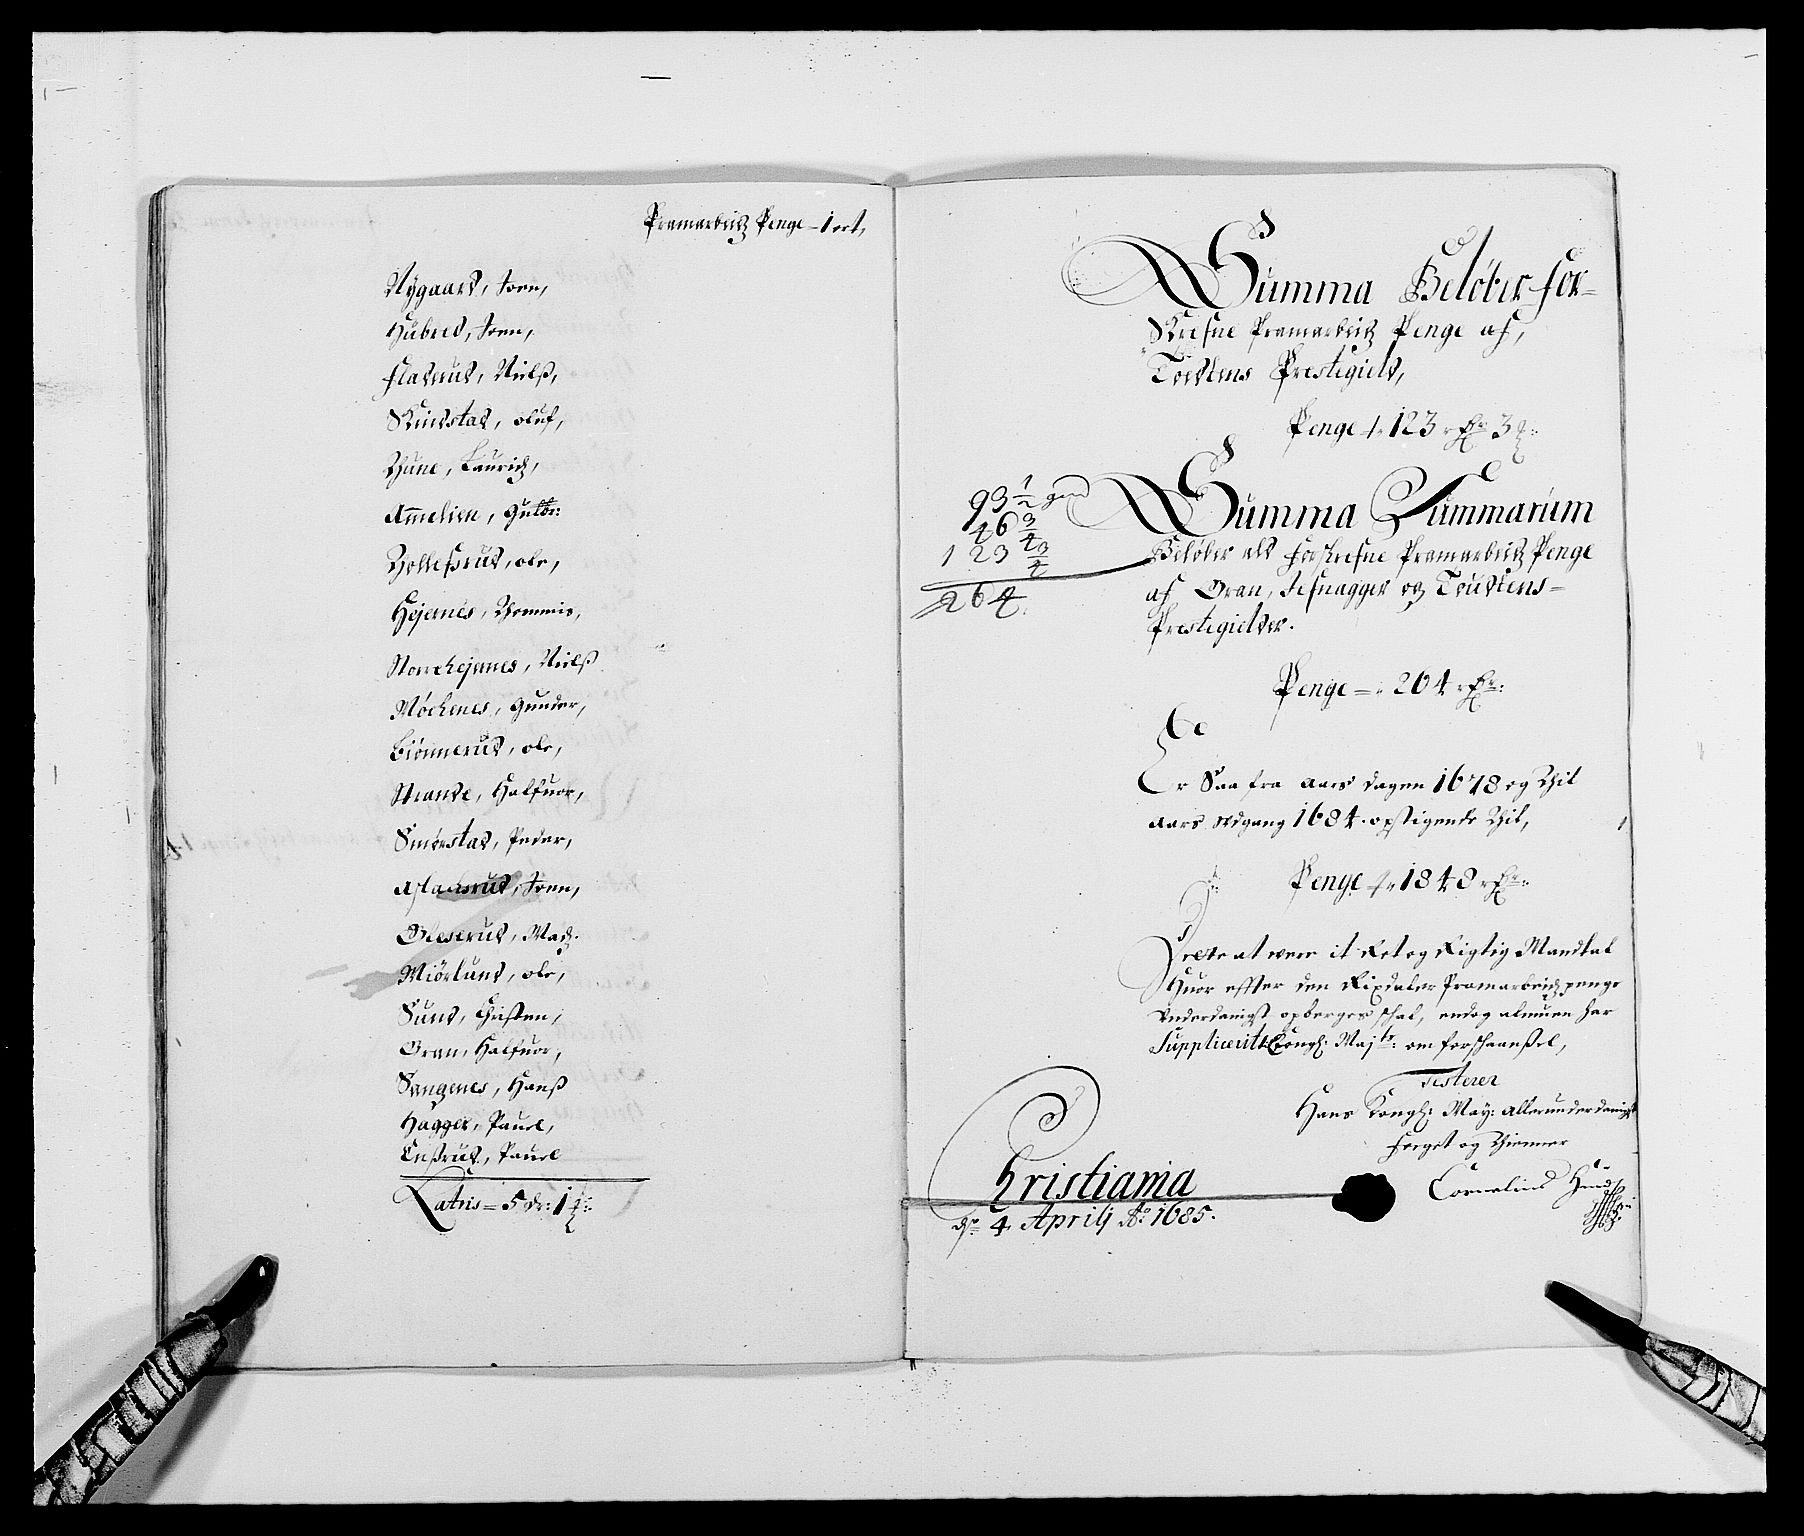 Pramarbeitz Penge - 1 ort,
Nÿgaard, Iven,
Hubred, Iven,
Fladrud, Nielß,
Skiadstad, Oluf,
Thune, Lauridz,
Ammelien, Gulbr:
Thollefsrud, ole,
Hejernes, Thommis,
Nordhejrnes, Nielß
Nöchenes, Gunder,
Biönnerud, ole,
Strande, Halfuor,
Smörstad, Peder,
Aslachsrud, Iven,
Glæserud, Madz.
Miörlund, ole,
Sund, Christen,
Gran, Halfuor,
Sangenes, Hanß
Hagger, Pauel,
Enßrud, Pauel
Latris = 5 dr: 1 ß:
Summa Belöber for-
Skrefne Pramarbeitz Penge af,
Toedtens Prestegield,
Penge - 123 rdr 3 ß:
93 1/2
46 3/4
123 3/4
264.
Summa Summarum
Belöber ald forskrefne Pramarbeitz Penge
af Gran, Jefnagger og Toedtens-
Prestegielder.
Penge - 264 rdr:
Er Saa fra aars dagen 1678 og Thil
aars udgang 1684. opstigende Thil,
Penge - 1848 rdr:
Dette at were it Ret og Rigtig Mandtal
Huor effter den Rixdaler Pramarbeidz penge
Underdanigst opberges schal, endog almuen har
Suppliceritt Kongl: Maj:ts om forschaanßel,
Testerer
Hans Kongl: May: allerunderdanigst
Foeget og Thienner
Cornelius
Christiania
d. 4 Aprilj Ao 1685.